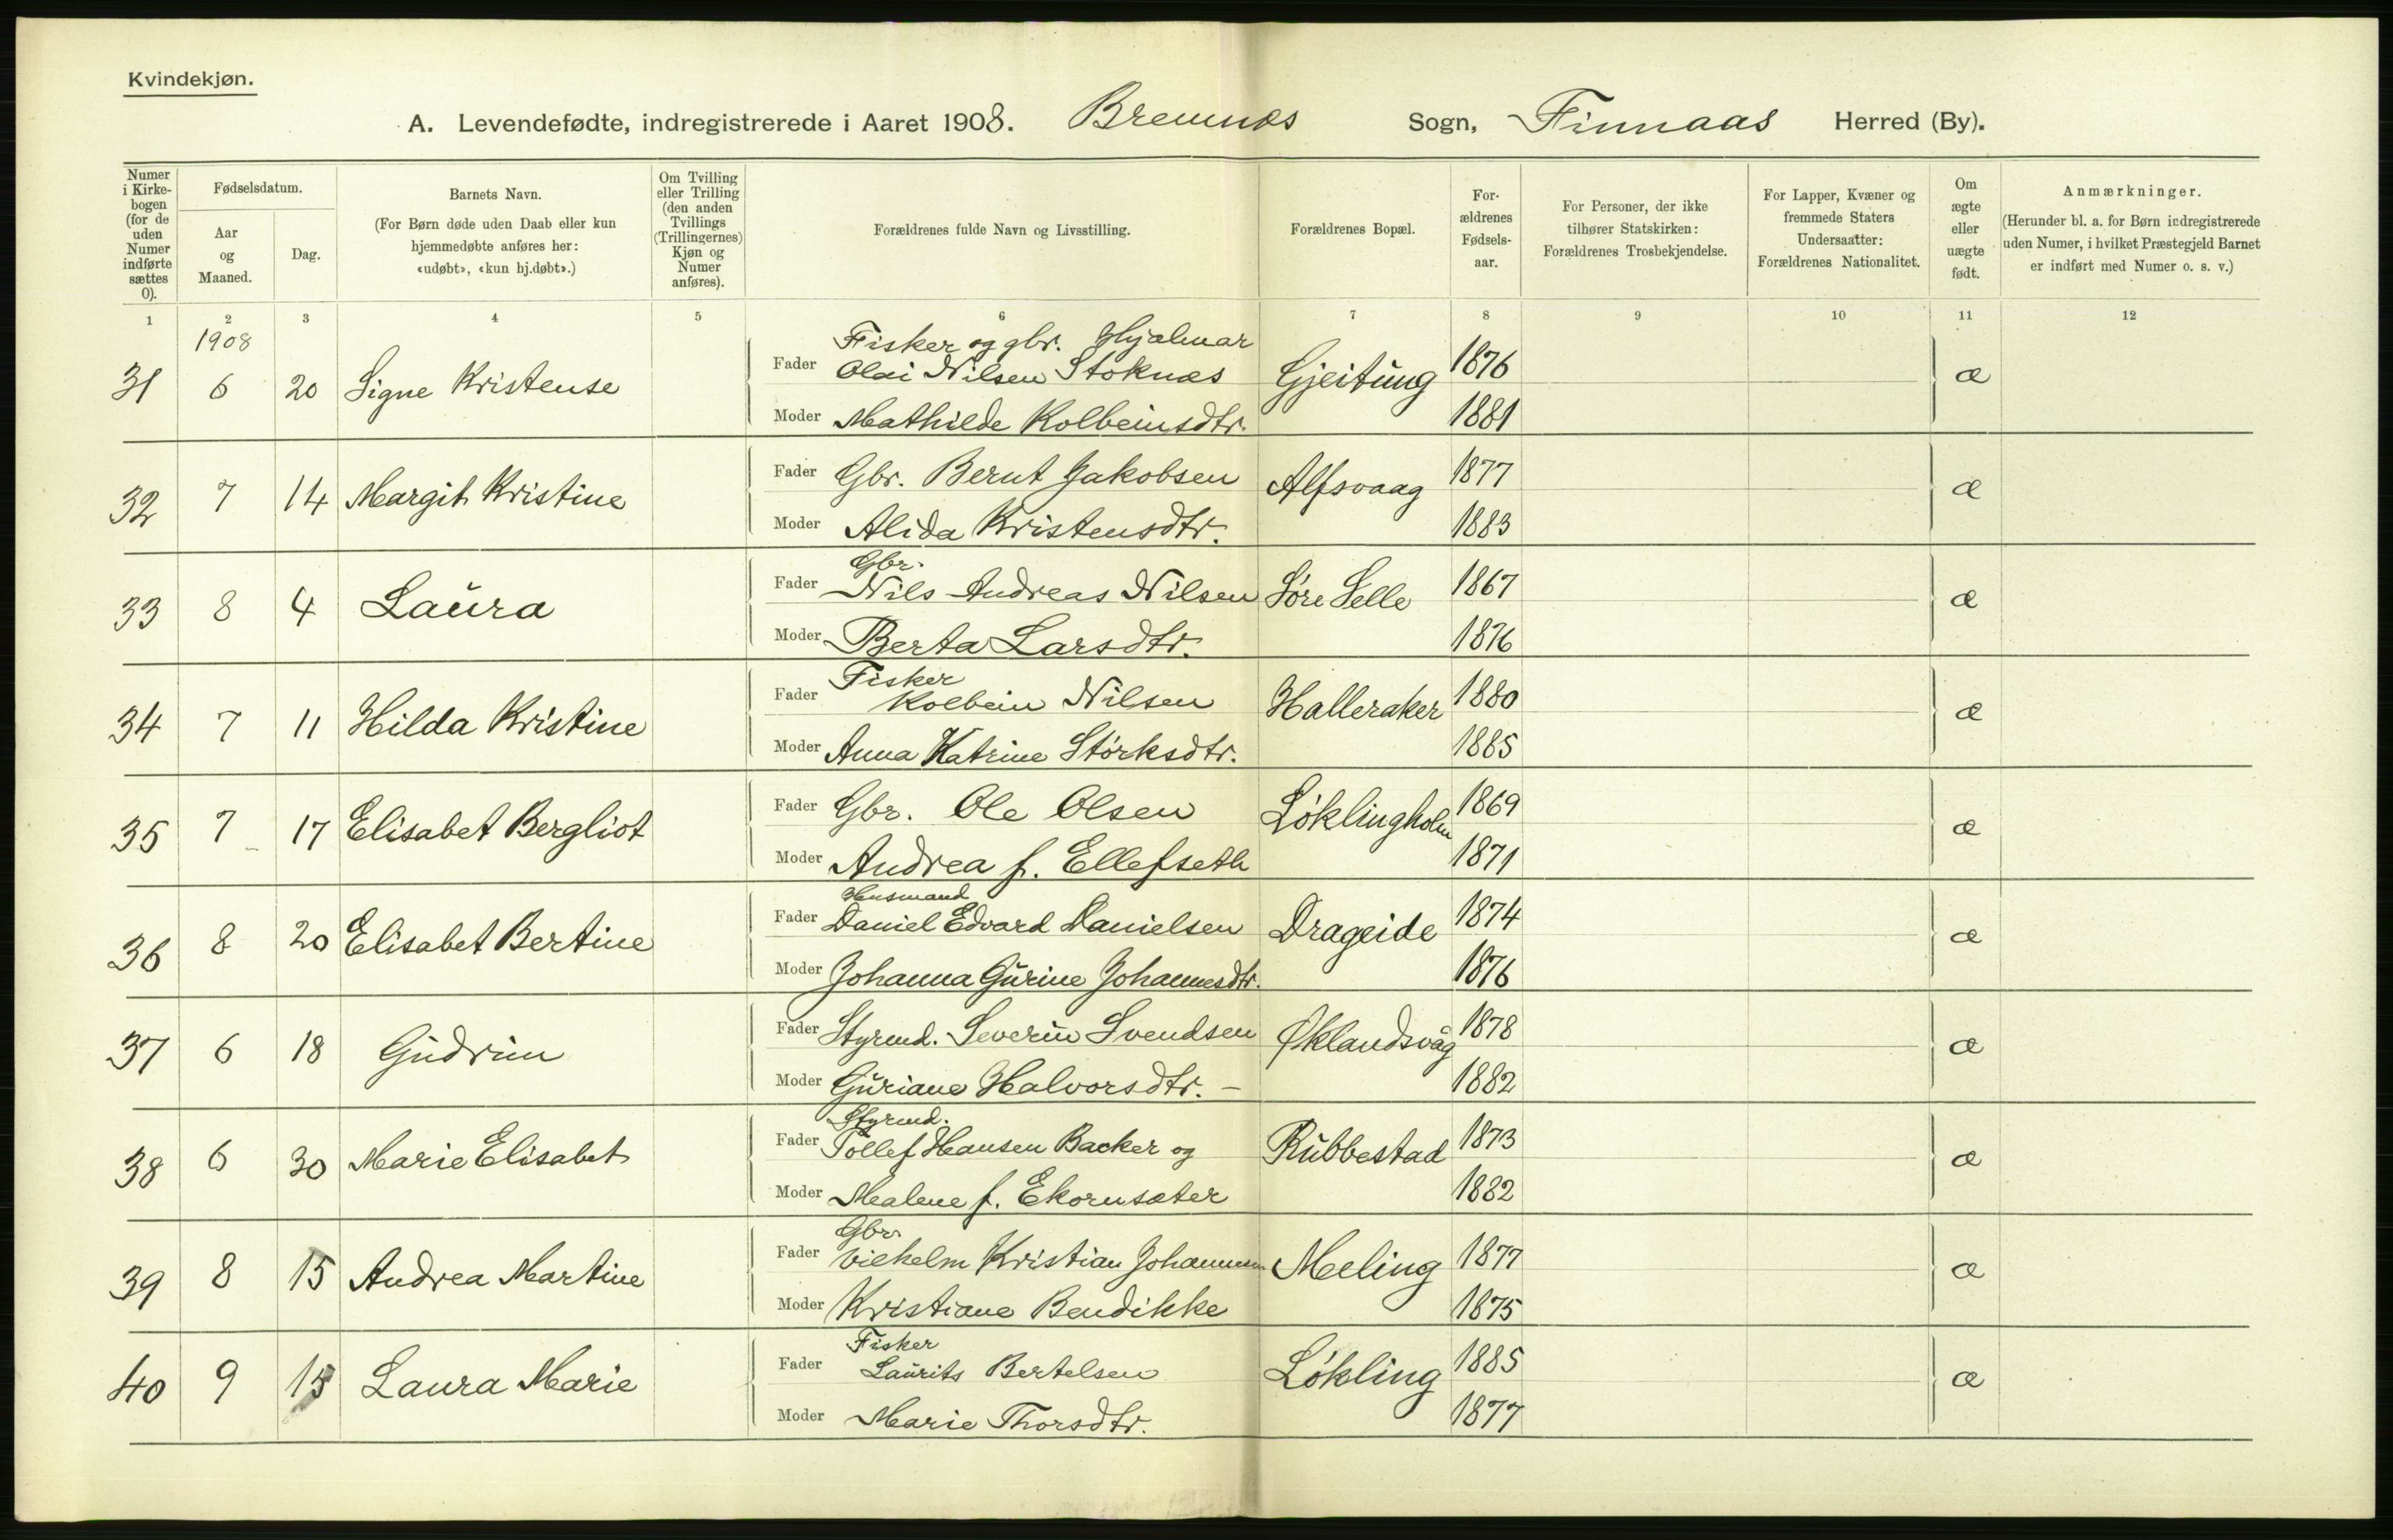 Kvindekjøn.
A. Levendefødte, indregistrerede i Aaret 1908. Bremnes Sogn, Finnaas Herred (By).
Numer i Kirkebogen (for de uden Numer indførte sættes 0).
Fødselsdatum.
Aar og Maaned.
Dag.
Barnets Navn.
(For Børn døde uden Daab eller kun hjemmedøbte anføres her: «udøbt», «kun hj.døbt».)
Om Tvilling eller Trilling (den anden Tvillings (Trillingernes) Kjøn og Numer anføres).
Forældrenes fulde Navn og Livsstilling.
Forældrenes Bopæl.
Forældrenes Fødselsaar.
For Personer, der ikke tilhører Statskirken: Forældrenes Trosbekjendelse.
For Lapper, Kvæner og fremmede Staters Undersaatter: Forældrenes Nationalitet.
Om ægte eller uægte født.
Anmærkninger.
(Herunder bl. a. for Børn indregistrerede uden Numer, i hvilket Præstegjeld Barnet er indført med Numer o. s. v.)
1 2 3 4 5 6 7 8 9 10 11 12
1908
31 6 20 Signe Kristense Fader Fisker og gbr. Hjalmar Olai Nilsen Stoknes Gjeitung 1876 æ
Moder Mathilde Kolbeinsdtr. 1881
32 7 14 Margit Kristine Fader Gbr. Bernt Jakobsen Alfsvaag 1877 æ
Moder Alida Kristensdtr. 1883
33 8 4 Laura Fader Gbr. Nils Andreas Nilsen Søre Selle 1867 æ
Moder Berta Larsdtr. 1876
34 7 11 Hilda Kristine Fader Fisker Kolbein Nilsen Halleraker 1880 æ
Moder Anna Katrine Størksdtr. 1885
35 7 17 Elisabet Bergliot Fader Gbr. Ole Olsen Løklingholm 1869 æ
Moder Andrea f. Ellefseth 1871
36 8 20 Elisabet Bertine Fader Husmand Daniel Edvard Danielsen Drageide 1874 æ
Moder Johanna Gurine Johannesdtr. 1876
37 6 18 Gudrun Fader Styrmd. Severin Svendsen Øklandsvåg 1878 æ
Moder Guriane Halvorsdtr. – 1882
38 6 30 Marie Elisabet Fader Styrmd. Tollef Hansen Backer og Rubbestad 1873 æ
Moder Malene f. Ekornsæter 1882
39 8 15 Andrea Martine Fader Gbr. Vilhelm Kristian Johannesen Meling 1877 æ
Moder Kristiane Bendikke 1875
40 9 15 Laura Marie Fader Fisker Laurits Bertelsen Løkling 1885 æ
Moder Marie Thorsdtr. 1877